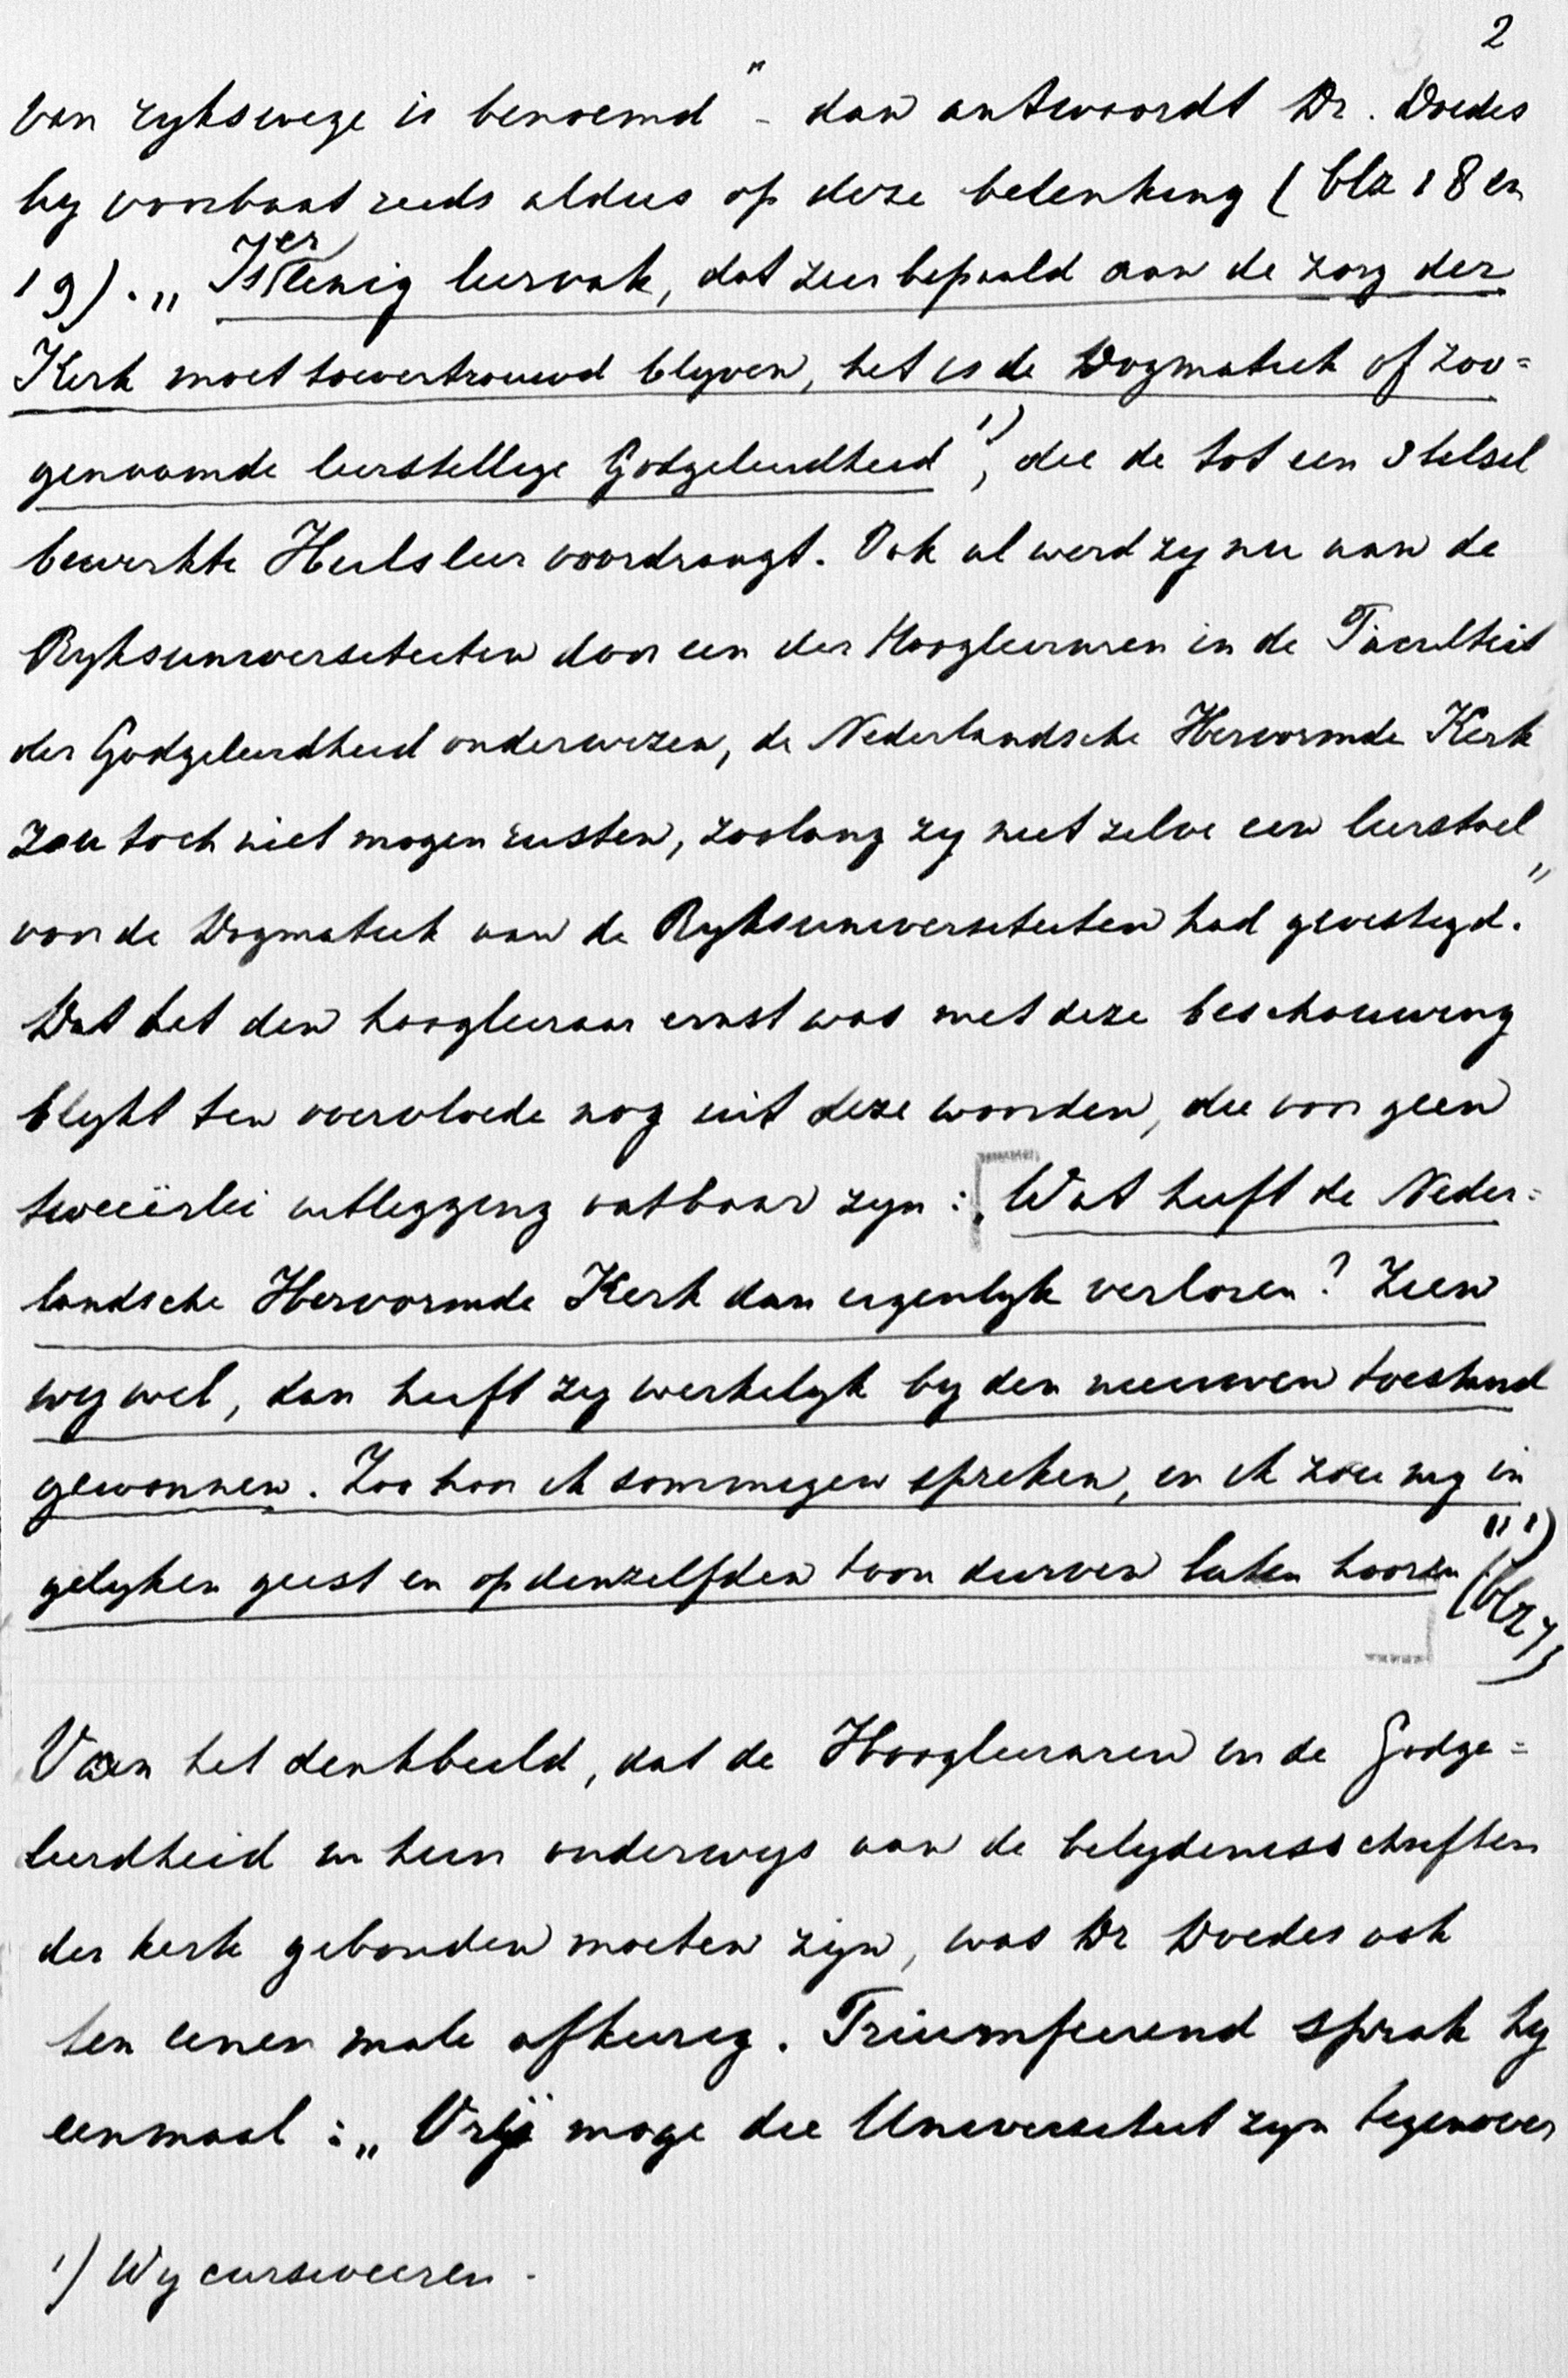 2
van rykswege is benoemd" - dan antwoordt Dr. Doedes
by voorbaat reeds aldus op deze bedenking (blz 18 en
19). „Is er eenig leervak, dat zeer bepaald aan de zorg der
Kerk moet toevertrouwd blyven, het is de Dogmatiek of zoo=
genaamde leerstellige Godgeleerdheid ¹), die de tot een stelsel
bewerkte Heilsleer voordraagt. Ook al werd zy nu aan de
Ryksuniversiteiten door een der Hoogleeraren in de Faculteit
der Godgeleerdheid onderwezen, de Nederlandsche Hervormde Kerk
zou toch niet mogen rusten, zoolang zy niet zelve een leerstoel
voor de Dogmatiek aan de Ryksuniversiteiten had gevestigd."
Dat het den hoogleeraar ernst was met deze beschouwing
blykt ten overvloede nog uit deze woorden, die voor geen
tweeërlei uitlegging vatbaar zyn: „Wat heeft de Neder=
landsche Hervormde Kerk dan eigenlyk verloren? Zien
wy wel, dan heeft zy werkelyk by den nieuwen toestand
gewonnen. Zoo hoor ik sommigen spreken, en ik zou my in
gelyken geest en op denzelfden toon durven laten hooren" ¹)
(blz 7)
Van het denkbeeld, dat de Hoogleeraren in de Godge=
leerdheid in hun onderwys aan de belydenisschriften
der kerk gebonden moeten zijn, was Dr Doedes ook
ten eenen male afkeerig. Triumfeerend sprak hy
eenmaal: „Vrij moge die Universiteit zyn tegenover
¹) Wy cursiveeren.